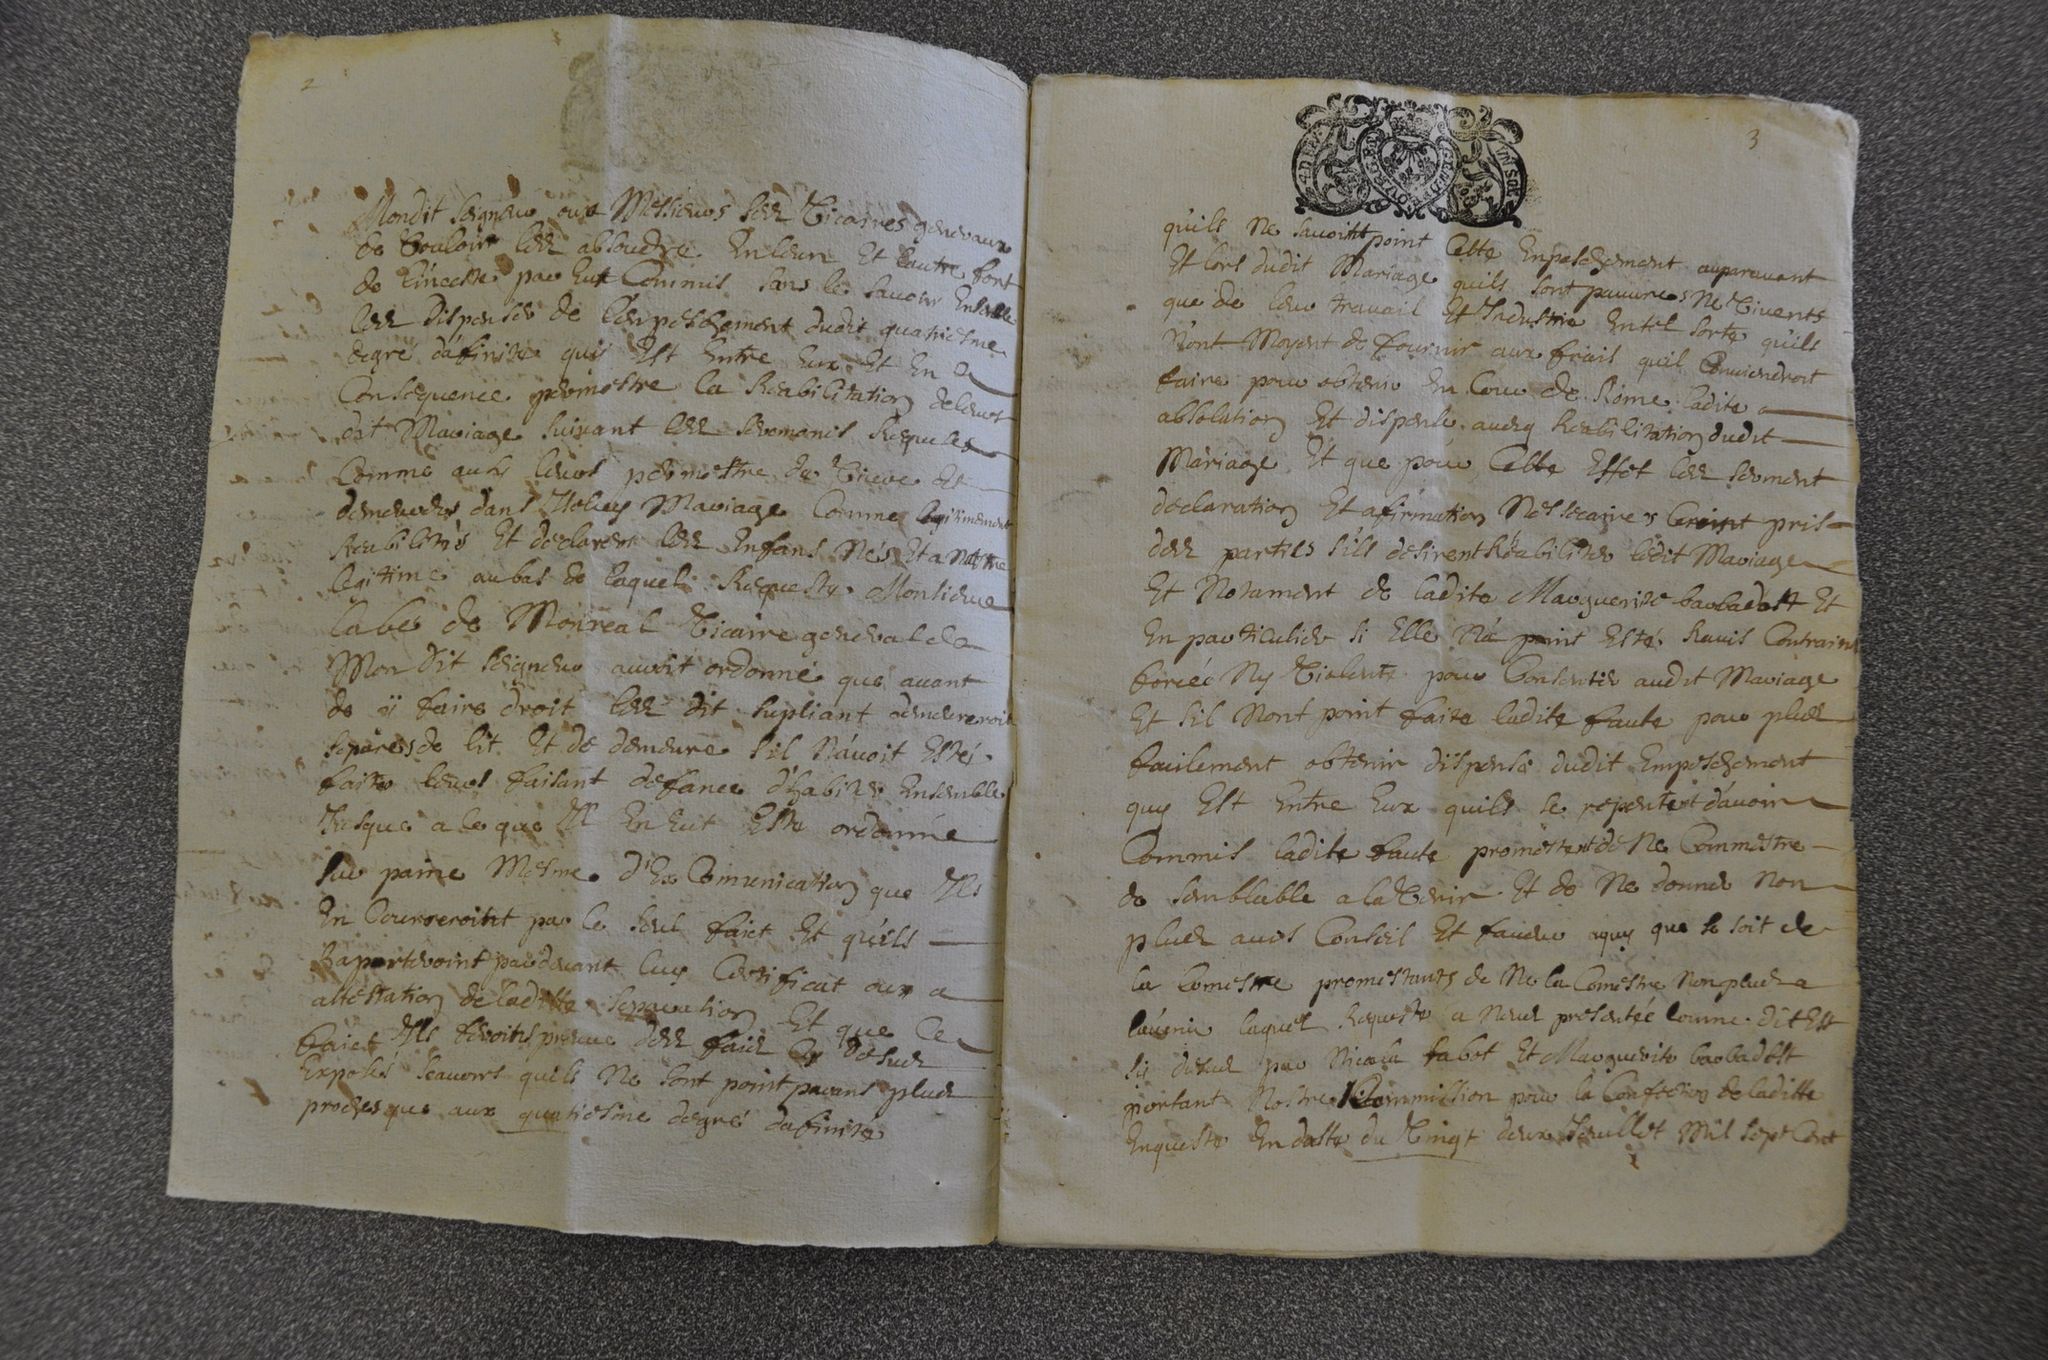 2
Mondit seigneur ou a Messieurs ses Vicaires generaux
de Vouloir les absoudre Enleurs Et lautre fort
de linceste par Eux Commis sans le savoir Ensemble
les dispenser de lempeschement dudit quatriesme
degre dafinité quis Est Entre Eux Et En
Consequence permestre la Reabilitation deleurs
dit Mariage suivant les seremonis Requises
Comme ausi leurs permestre de Vievre Et
demeurer dans Yceluy Mariage Comme legitimement
Reabilités Et declarer les Enfans Nés Et a Naittre
legitime au bas de laquele Requeste Monsieur
labé de Monreal Vicaire general de
Mon Dit seigneur auvoit ordonné que avant
de ÿ faire droit les dit supliant demureroit
sepáres de lit Et de demeure sil Návoit Esté
faite leurs faisant defance d'habiter Ensemble
Jusque a ce que Il En Eut Esté ordonnée
sur paine Mesme d'Ex Comunication que Ils
En Coureroint par le seul faict Et quils
Raporteroint pardevant luy Certificat ou
attestation deladitte separation Et que Ce
faict Ils feroint preuve des faicts Cy desus
Exposés scauoirs quils Ne sont point parans plus
proches que aux quatriesme degré dafinite
3
quils Ne savoint point Cette Enpeschement auparauant
Et lors dudit Mariage quils sont pauures Ne Vivents
que de leur travail Et Industrie Entel sorte quils
Nont Moyent de fournir aux frais quil Conviendroit
faire pour obtenir En Cour de Rome ladite
absolution Et dispense aveq Reabilitation dudit
Mariage Et que pour Cette Effet les serment
declaration Et afirmation Nessecaires Seroint pris
des parties sils desirent Réabiliter ledit Mariage
Et Notament de ladite Marguerite barbadost Et
En particulier si Elle Ná point Esté Ravis Contrainte
forcée Ny Violente pour Consentir audit Mariage
Et sil Nont point faite ladite faute pour plus
facilement obtenir dispense dudit Empeschement
quy Est Entre Eux quils se repentent davoir
Commis ladite faute promettent de Ne Commestre
de semblable a la Venir Et de Ne donner Non
plus avis Conseil Et faveur aquy que se soit de
la Comestre promestants de Ne la Comestre Non plus a
lávenir laquel Requeste a Nous presentée Comme dit Est
sy desus par Nicola tabot Et Marguerite barbadost
portant Nostre Commission pour la Confection de laditte
Enqueste En datte du Vingt deux Jeuillet Mil sept Cent